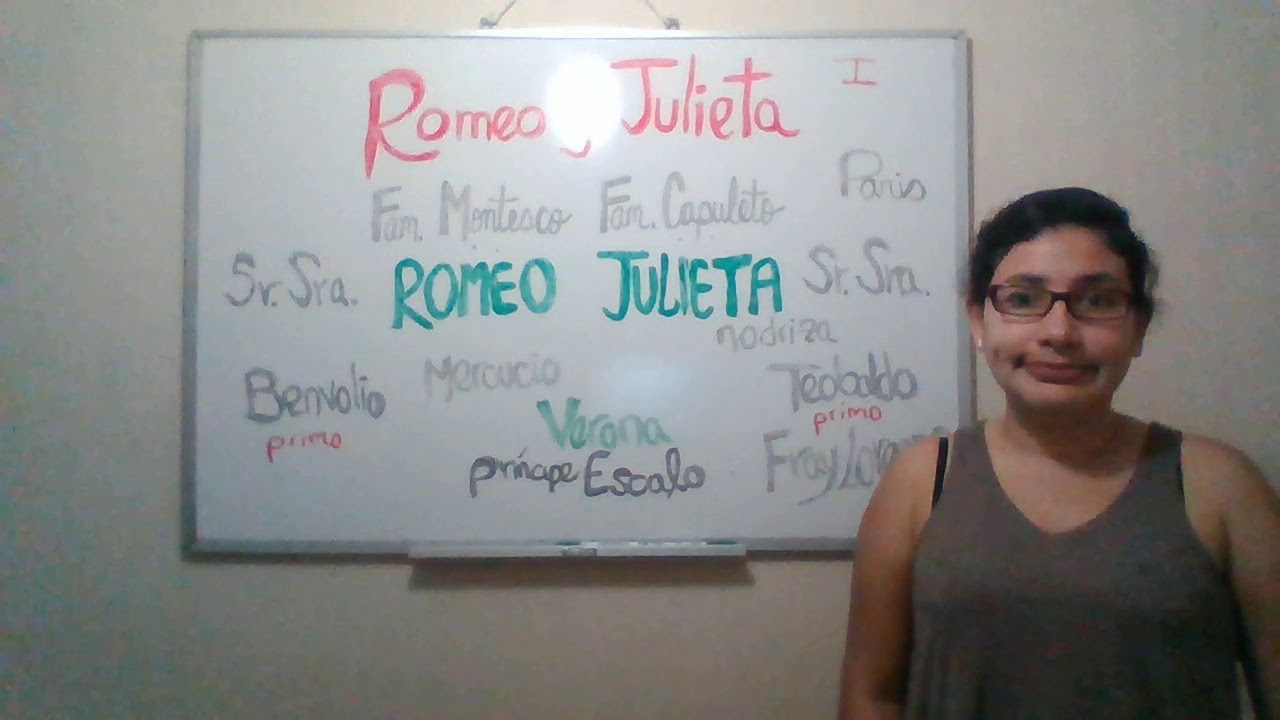 Romeo y Julieta I
Paris
Fam. Montesco Fam. Capuleto
Sr. Sra. ROMEO JULIETA Sr. Sra.
nodriza
Benvolio Mercucio Teobaldo
primo primo
Verona
príncipe Escalo Fray